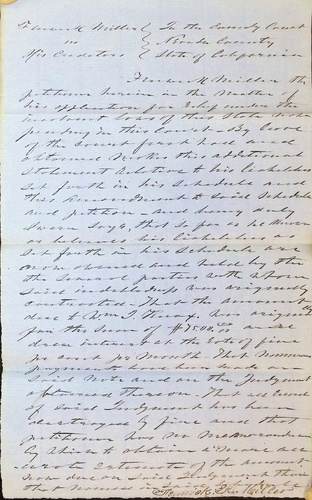 Miller } In the County Court
vs } Nevada County
His Creditors } State of California
Miller the
petitioner herein in the matter of
his application for relief under the
insolvent laws of this State now
pending in this Court By leave
of the Court first had and
obtained makes this additional
Statement relative to his liabilities
set forth in his Schedule and
this amendment to said Schedule
and petition and being duly
sworn says, that so far as he knows
or believes his liabilities as
set forth in his Schedule are
now owned and held by the
the several parties with whom
said indebtedness was originally
contracted. That the amount
due to Wm was originally
for the sum of $7500 and
drew interest at the rate of five
per cent per month. That numerous
payments have been made on
said note and on the Judgment
obtained thereon. That all record
of said Judgment has been
destroyed by fire and that
petitioner has no memorandum
by which to obtain a more
estimate of the amount
now due on said Judgment than
that